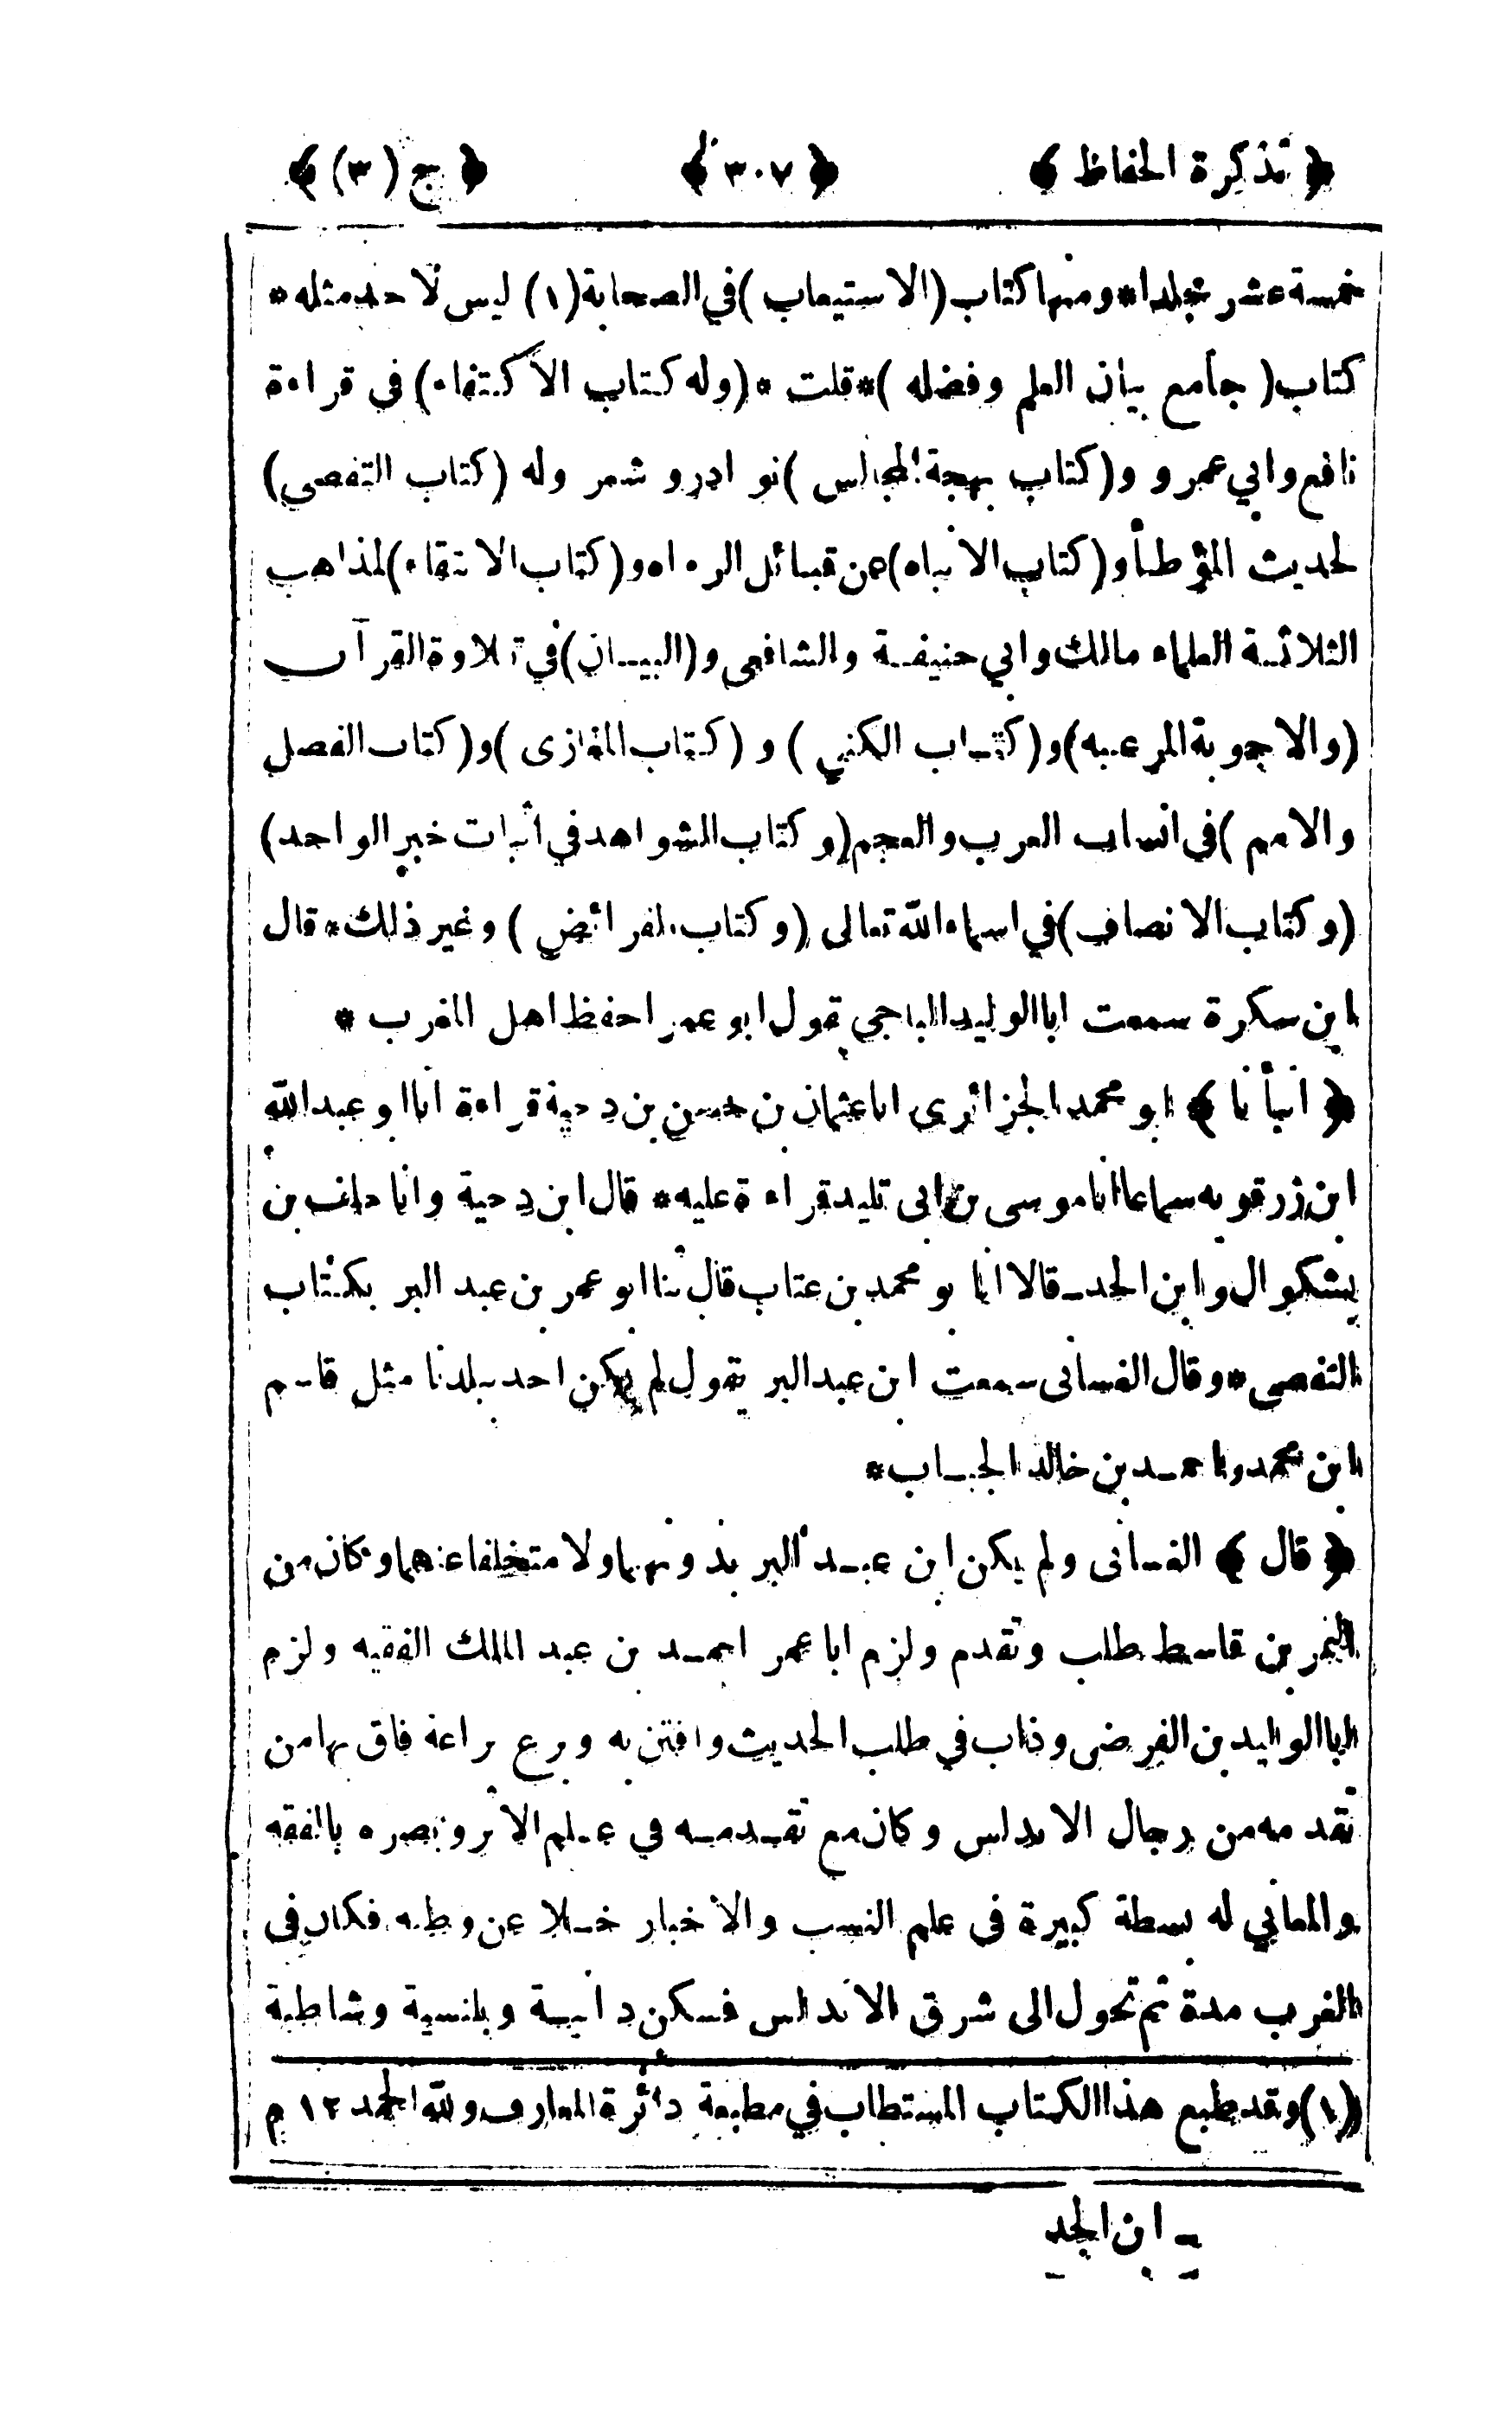 ﴿ تذكرة الحفاظ ﴾ ﴿ ٣٠٧ ﴾ ﴿ ج (٣) ﴾
خمسة عشر مجلدا * ومنها كتاب (الاستيعاب) في الصحابة (١) ليس لاحد مثله *
كتاب (جامع بيان العلم وفضله) * قلت * (وله كتاب الاكتفاء) في قراءة
نافع وابي عمرو و (كتاب بهجة المجالس) نوادر وشعر وله (كتاب التفصى)
لحديث المؤطأ و (كتاب الانباه) عن قبائل الرواه و (كتاب الانتقاء) لمذاهب
الثلاثة العلماء مالك وابي حنيفة والشافعى و (البيان) في تلاوة القرآن
(والاجوبة الموعبه) و (كتاب الكنى) و (كتاب المغازى) و (كتاب الفصل
والامم) في انساب العرب والعجم (وكتاب الشواهد في اثبات خبر الواحد)
(وكتاب الانصاف) في اسماء الله تعالى (وكتاب الفرائض) وغير ذلك * قال
ابن سكرة سمعت ابا الوليد الباجي يقول ابو عمر احفظ اهل المغرب *
﴿ انبأنا ﴾ ابو محمد الجزائرى انا عثمان بن حسن بن دحية قراءة انا ابو عبد الله
ابن زرقويه سماعا انا موسى بن ابى تليد قراءة عليه * قال ابن دحية وانا خلف بن
بشكوال وابن الجد ـ قالا انا ابو محمد بن عتاب قال ثنا ابو عمر بن عبد البر بكتاب
التفصى * وقال الغسانى سمعت ابن عبد البر يقول لم يكن احد ببلدنا مثل قاسم
ابن محمد واحمد بن خالد الجباب *
﴿ قال ﴾ الغسانى ولم يكن ابن عبد البر بدونهما ولا متخلفا عنهما وكان من
النمر بن قاسط طلب وتقدم ولزم ابا عمر احمد بن عبد الملك الفقيه ولزم
ابا الوليد بن الفرضى وذاب في طلب الحديث وافتن به وبرع براعة فاق بها من
تقدمه من رجال الاندلس وكان مع تقدمه في علم الاثر وبصره بالفقه
والمعاني له بسطة كبيرة في علم النسب والاخبار خلا عن وطنه فكان في
الغرب مدة ثم تحول الى شرق الاندلس فسكن دانية وبلنسية وشاطبة
(١) وقد طبع هذا الكتاب المستطاب في مطبعة دائرة المعارف ولله الحمد ١٢ م
ـ ابن الجد